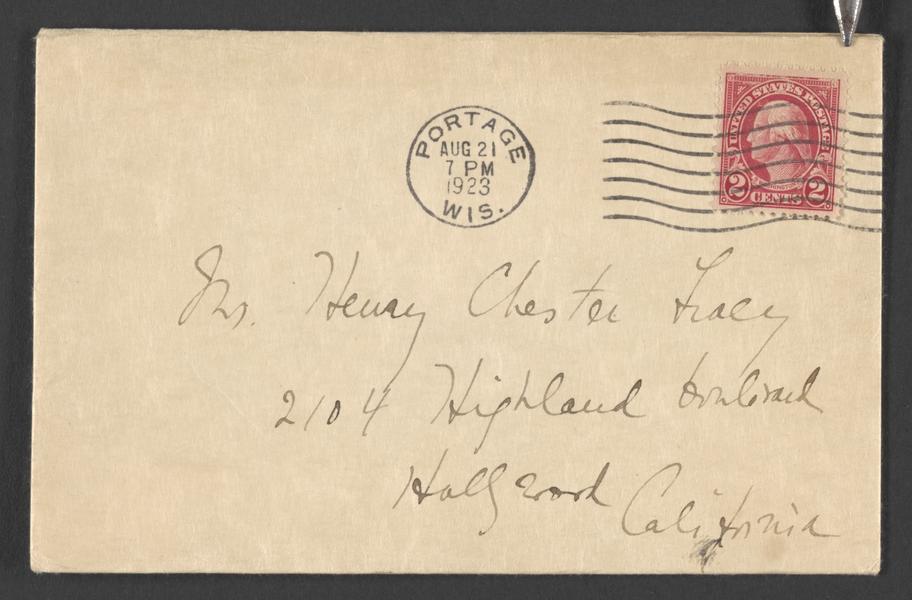 PORTAGE
AUG 21
7 PM
1923
WIS.
UNITED STATES POSTAGE
WASHINGTON
2 CENTS 2
Mr. Henry Chester Tracy
2104 Highland Boulevard
Hollywood California